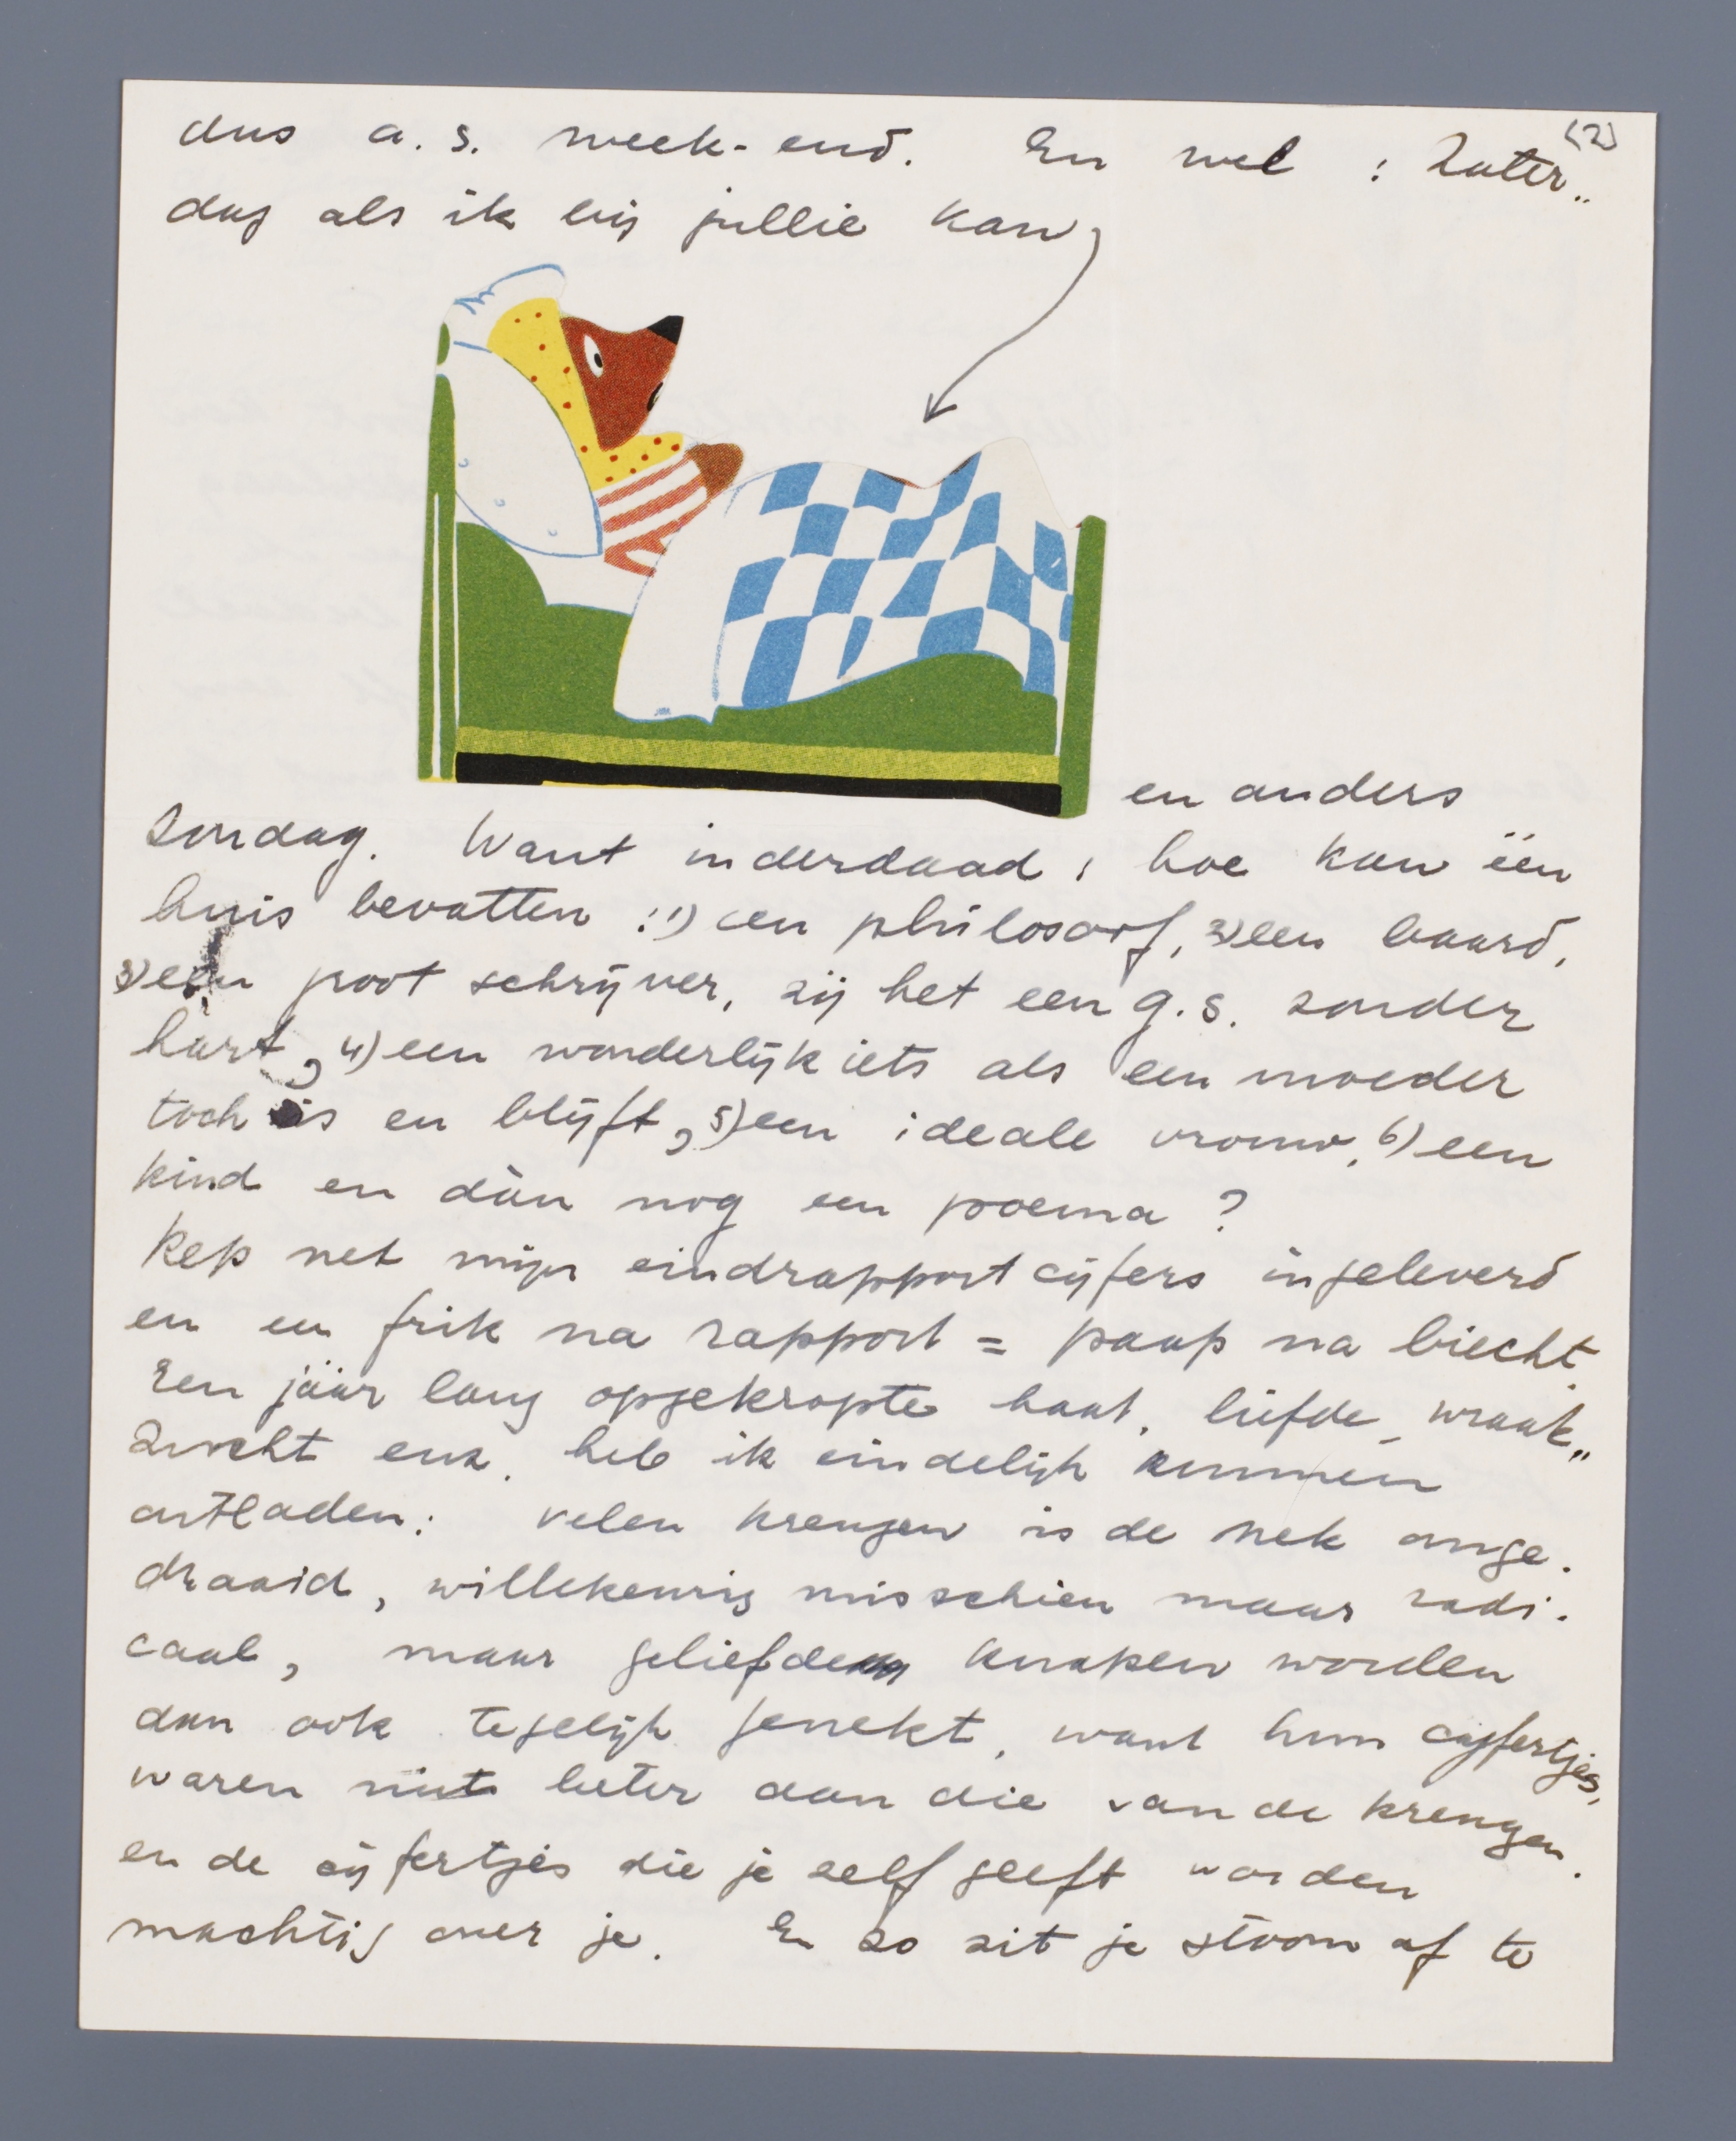 (2)
dus a.s. week-end. En wel : Zater„
dag als ik bij jullie kan
en anders
Zondag. Want inderdaad, hoe kan één
huis bevatten : 1) een philosoof, 2) een baard,
3) een groot schrijver, zij het een g.s. zonder
hart, 4) een wonderlijk iets als een moeder
toch is en blijft, 5) een ideale vrouw, 6) een
kind en dàn nog een poema ?
Heb net mijn eindrapportcijfers ingeleverd
en een frik na rapport = paap na biecht.
Een jáár lang opgekropte haat, liefde, wraak„
zucht enz. heb ik eindelijk kunnen
ontladen: velen krengen is de nek omge-
draaid, willekeurig misschien maar radi-
caal, maar geliefde knapen worden
dan ook tegelijk genekt, want hun cijfertjes,
waren niet beter dan die van de krengen.
en de cijfertjes die je zelf geeft worden
machtig over je. En zo zit je stoom af te